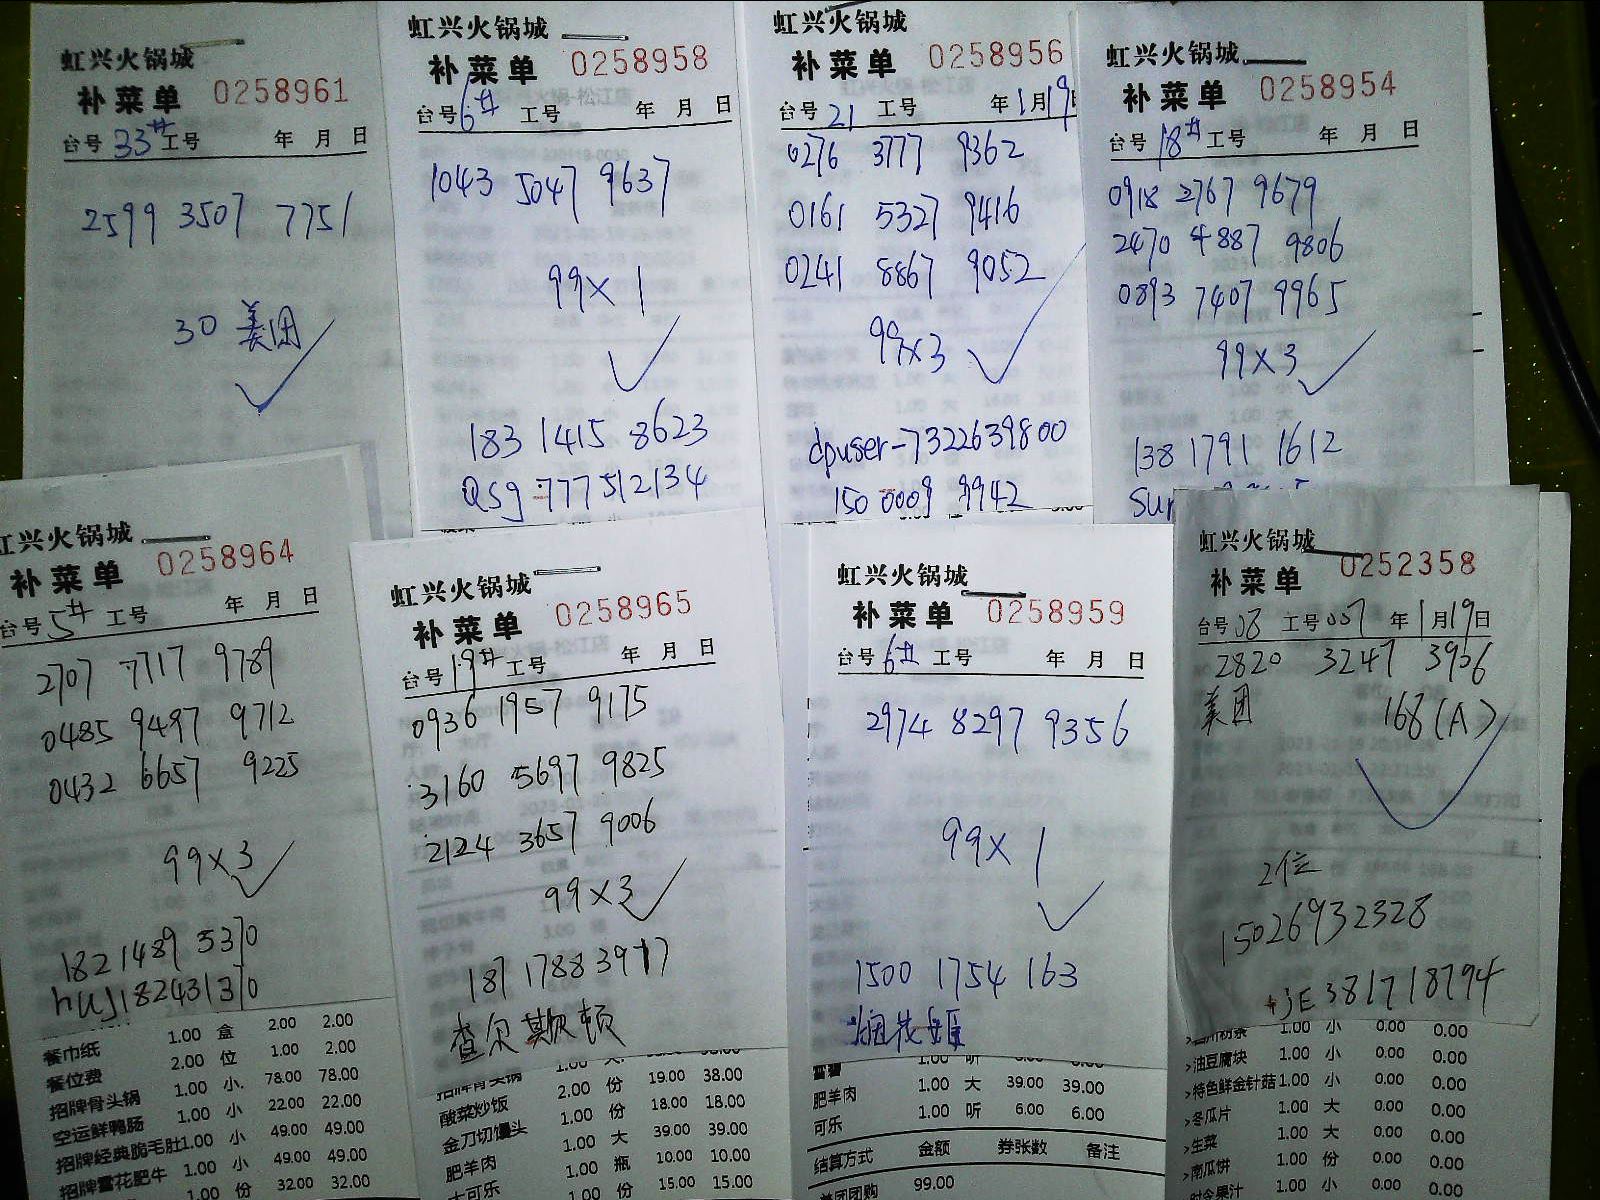 虹兴火锅城
补菜单 0258961
台号 33# 工号 年 月 日
2599 3507 7751
30 美团
虹兴火锅城
补菜单 0258958
台号 6# 工号 年 月 日
1043 5047 9637
99×1
183 1415 8623
QSg 777512134
虹兴火锅城
补菜单 0258956
台号 21 工号 年 1月 19
0276 3777 9362
0161 5327 9416
0241 8867 9052
99×3
dpuser-7322639800
150 0009 9942
虹兴火锅城
补菜单 0258954
台号 18# 工号 年 月 日
0918 2767 9679
2470 4887 9806
0893 7407 9965
99×3
138 1791 1612
虹兴火锅城
补菜单 0258964
台号 5# 工号 年 月 日
2707 7717 9789
0485 9497 9712
0432 6657 9225
99×3
182 1489 5330
huj182431330
餐巾纸 1.00 盒 2.00 2.00
餐位费 2.00 位 1.00 2.00
招牌骨头锅 1.00 小 78.00 78.00
空运鲜鸭肠 1.00 小 22.00 22.00
招牌经典脆毛肚 1.00 小 49.00 49.00
招牌雪花肥牛 1.00 小 49.00 49.00
1.00 份 32.00 32.00
虹兴火锅城
补菜单 0258965
台号 19# 工号 年 月 日
0936 1957 9175
3160 5697 9825
2124 3657 9006
99×3
187 1788 3917
查尔斯顿
招牌骨头锅
酸菜炒饭 2.00 份 19.00 38.00
金刀切馒头 1.00 份 18.00 18.00
肥羊肉 1.00 大 39.00 39.00
大可乐 1.00 瓶 10.00 10.00
1.00 份 15.00 15.00
虹兴火锅城
补菜单 0258959
台号 6# 工号 年 月 日
2974 8297 9356
99×1
1500 1754 163
烟花姬
雪碧 1.00 听 6.00 6.00
肥羊肉 1.00 大 39.00 39.00
可乐 1.00 听 6.00 6.00
结算方式 金额 券张数 备注
美团团购 99.00
虹兴火锅城
补菜单 0252358
台号 08 工号 007 年 1月 19日
2820 3247 3906
美团 168(A)
2位
15026932328
jE381718794
1.00 小 0.00 0.00
>油豆腐块 1.00 小 0.00 0.00
>特色鲜金针菇 1.00 小 0.00 0.00
>冬瓜片 1.00 大 0.00 0.00
>生菜 1.00 大 0.00 0.00
>南瓜饼 1.00 份 0.00 0.00
时令果汁 1.00 小 0.00 0.00